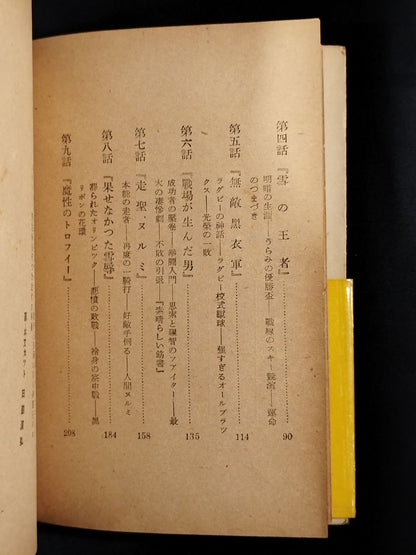 第四話 『雪の王者』 90
明暗の生涯――うらみの優勝盃――戦線のスキー競演――運命
のつまづき
第五話 『無敵黒衣軍』 114
ラグビーの神話――ラグビー校式蹴球――強すぎるオールブラツ
クス――光栄の一敗
第六話 『戦場が生んだ男』 135
成功者の圧巻――拳闘入門――思索と理智のファイター――最
大の凄惨劇――不敗の引退――『素晴らしい筋書』
第七話 『走聖、ヌルミ』 158
本能の走者――再度の一騎打――好敵手倒る――人間ヌルミ
第八話 『果せなかつた雪辱』 184
葬られたオリンピック――悲憤の敗戦――捨身の空中戦――黒
リボンの花環
第九話 『魔性のトロフィー』 208